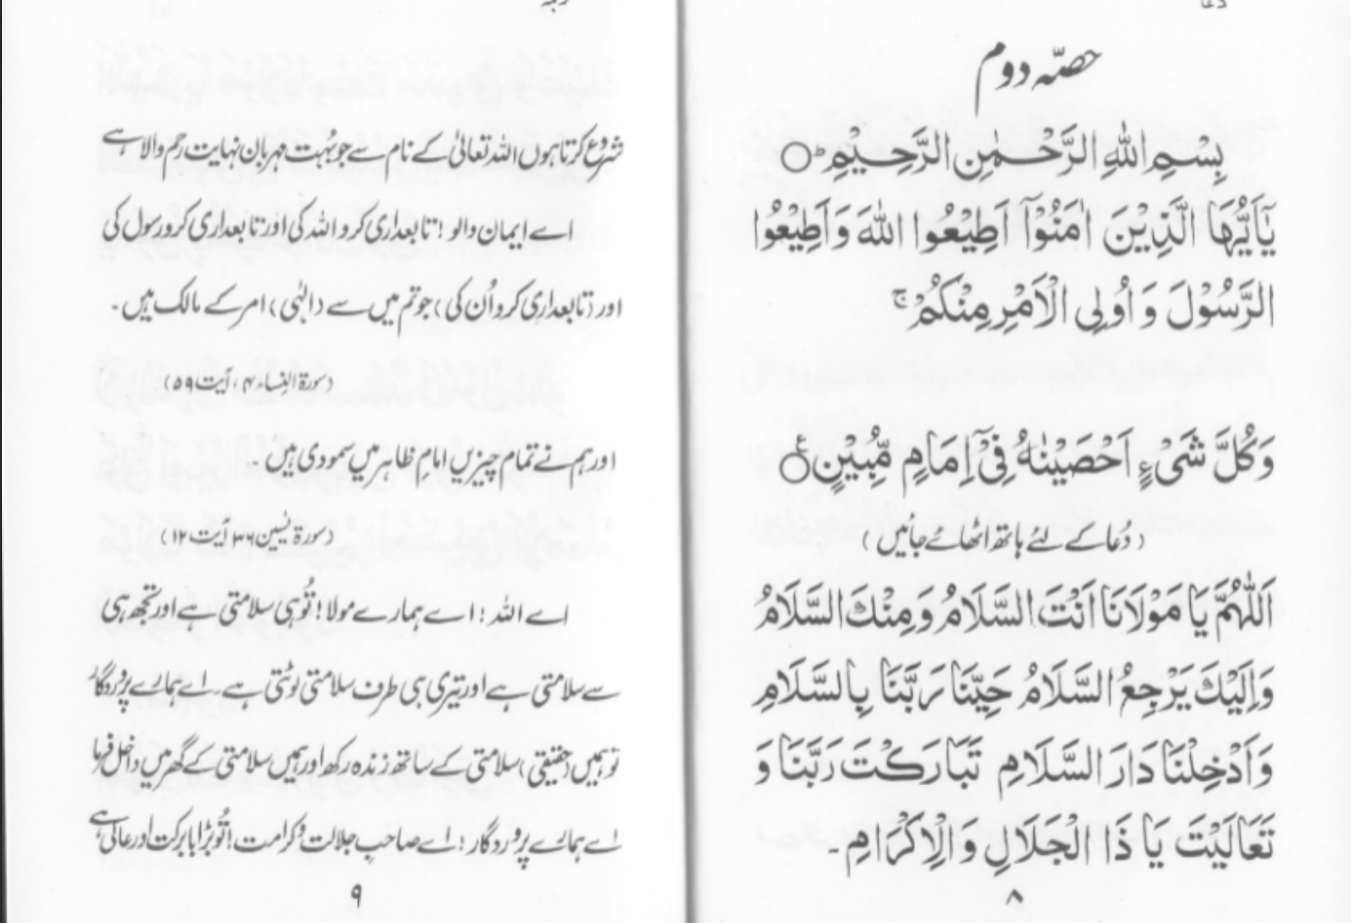 دعا
حصّہ دوم
بِسْمِ اللهِ الرَّحْمٰنِ الرَّحِيْمِ ط○
يٰٓاَيُّهَا الَّذِيْنَ اٰمَنُوْٓا اَطِيْعُوا اللهَ وَاَطِيْعُوا
الرَّسُوْلَ وَ اُولِى الْاَمْرِ مِنْكُمْ ج
وَكُلَّ شَىْءٍ اَحْصَيْنٰهُ فِىْٓ اِمَامٍ مُّبِيْنٍ ○ع
(دُعا کے لئے ہاتھ اٹھائے جائیں)
اَللّٰهُمَّ يَا مَوْلَانَا اَنْتَ السَّلَامُ وَمِنْكَ السَّلَامُ
وَاِلَيْكَ يَرْجِعُ السَّلَامُ حَيِّنَا رَبَّنَا بِالسَّلَامِ
وَاَدْخِلْنَا دَارَ السَّلَامِ تَبَارَكْتَ رَبَّنَا وَ
تَعَالَيْتَ يَا ذَا الْجَلَالِ وَالْاِكْرَامِ۔
۸
شروع کرتا ہوں اللہ تعالیٰ کے نام سے جو بہت مہربان نہایت رحم والا ہے
اے ایمان والو! تابعداری کرو اللہ کی اور تابعداری کرو رسول کی
اور (تابعداری کرو اُن کی) جو تم میں سے (الٰہی) امر کے مالک ہیں۔
(سورۃ النساء ۴، آیت ۵۹)
اور ہم نے تمام چیزیں امامِ ظاہر میں سمو دی ہیں۔
(سورۃ یٰسین ۳۶ آیت ۱۲)
اے اللہ! اے ہمارے مولا! تُو ہی سلامتی ہے اور تجھ ہی
سے سلامتی ہے اور تیری ہی طرف سلامتی لوٹتی ہے۔ اے ہمارے پروردگار
تو ہمیں (حقیقی) سلامتی کے ساتھ زندہ رکھ اور ہمیں سلامتی کے گھر میں داخل فرما
اے ہمارے پروردگار! اے صاحبِ جلالت و کرامت! تُو بڑا بابرکت اور عالی ہے
۹